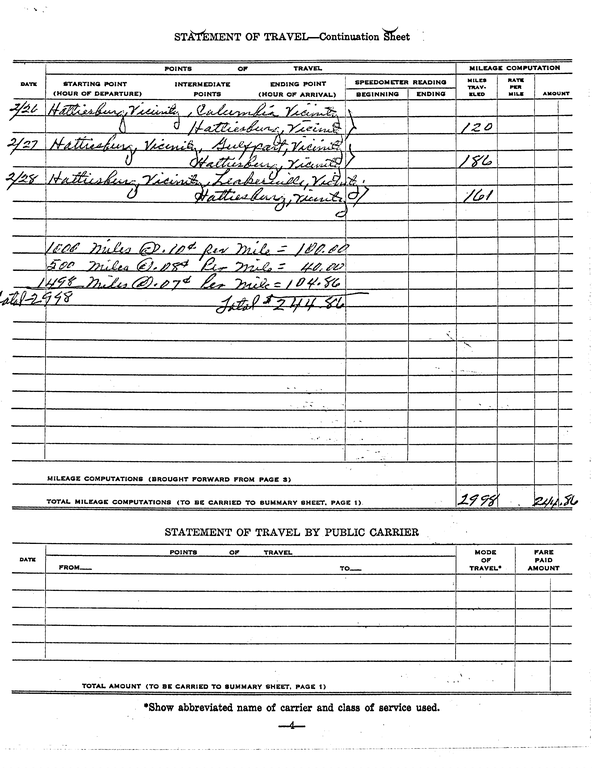 STATEMENT OF TRAVEL—Continuation Sheet
POINTS OF TRAVEL
MILEAGE COMPUTATION
DATE
STARTING POINT (HOUR OF DEPARTURE)
INTERMEDIATE POINTS
ENDING POINT (HOUR OF ARRIVAL)
SPEEDOMETER READING
BEGINNING ENDING
MILES TRAV- ELED
RATE PER MILE
AMOUNT
2/26 Hattiesburg, Vicinity, Columbia Vicinity
Hattiesburg, Vicinity 120
2/27 Hattiesburg, Vicinity, Gulfport, Vicinity
Hattiesburg, Vicinity 186
2/28 Hattiesburg, Vicinity, Leakesville, Vicinity
Hattiesburg, Vicinity 161
1000 Miles @ .10¢ per Mile = 100.00
500 Miles @ .08¢ Per Mile = 40.00
1498 Miles @ .07¢ Per Mile = 104.86
Total 2998 Total $244.86
MILEAGE COMPUTATIONS (BROUGHT FORWARD FROM PAGE 3)
TOTAL MILEAGE COMPUTATIONS (TO BE CARRIED TO SUMMARY SHEET, PAGE 1) 2998 244.86
STATEMENT OF TRAVEL BY PUBLIC CARRIER
DATE
POINTS OF TRAVEL
FROM— TO—
MODE OF TRAVEL*
FARE PAID AMOUNT
TOTAL AMOUNT (TO BE CARRIED TO SUMMARY SHEET, PAGE 1)
*Show abbreviated name of carrier and class of service used.
—4—